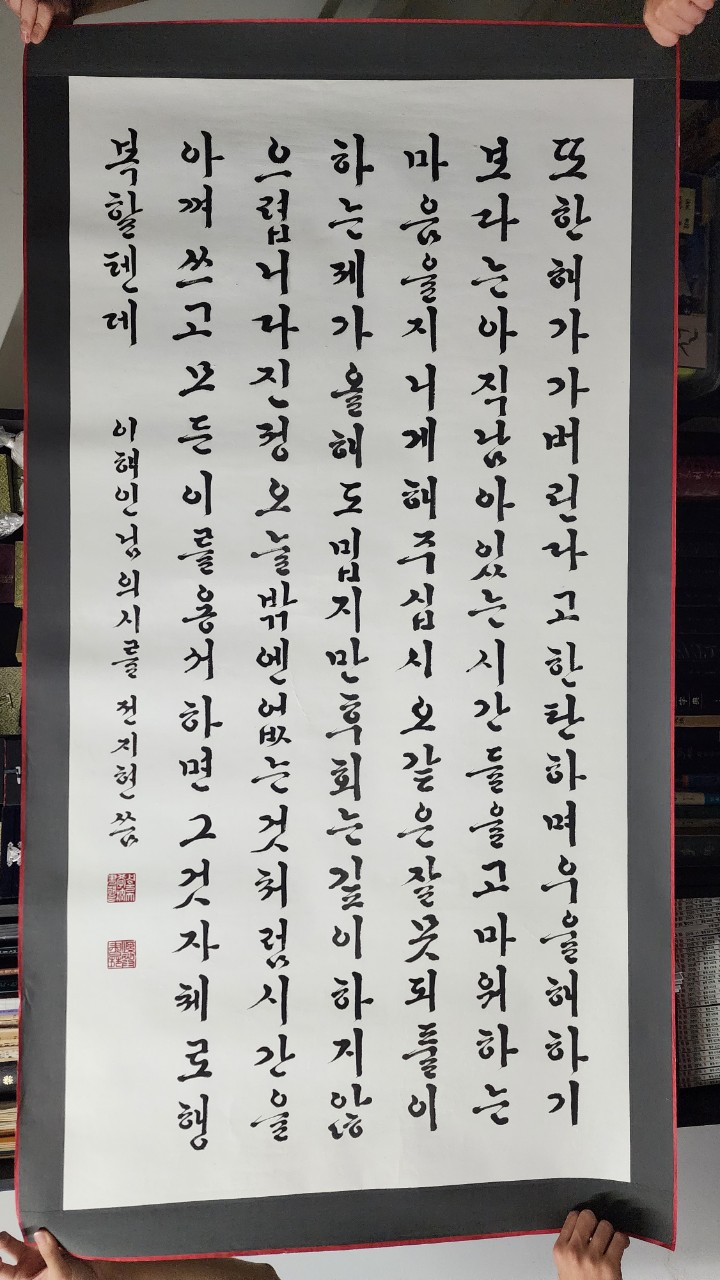 또한해가가버린다고한탄하며우울해하기
보다는아직남아있는시간들을고마워하는
마음을지니게해주십시오같은잘못되풀이
하는제가올해도밉지만후회는깊이하지않
으렵니다진정오늘밖엔없는것처럼시간을
아껴쓰고모든이를용서하면그것자체로행
복할텐데
이해인님의시를 전지현 씀